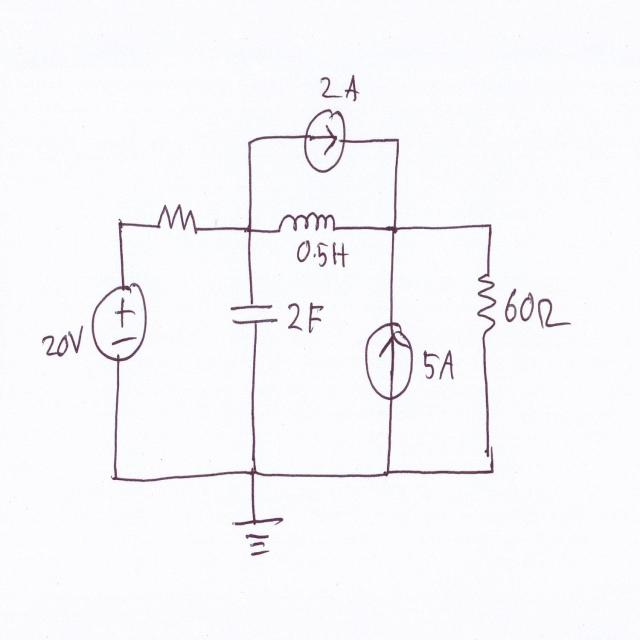 2A
0.5H
20V
2F
5A
60Ω